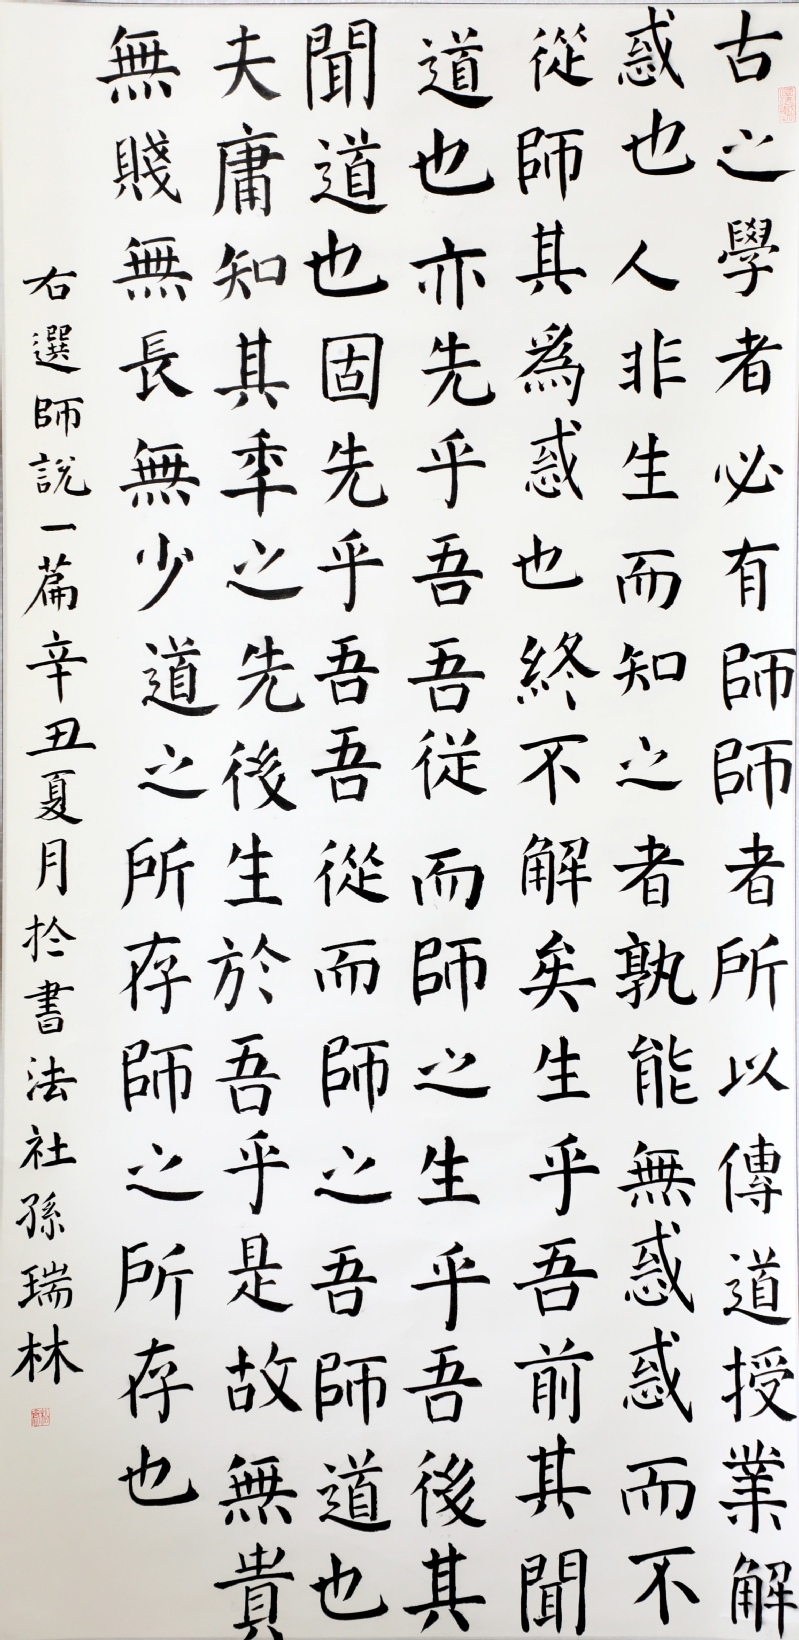 古之學者必有師師者所以傳道授業解
惑也人非生而知之者孰能無惑惑而不
從師其爲惑也終不解矣生乎吾前其聞
道也亦先乎吾吾従而師之生乎吾後其
聞道也固先乎吾吾從而師之吾師道也
夫庸知其秊之先後生於吾乎是故無貴
無賤無長無少道之所存師之所存也
右選師說一篇辛丑夏月扵書法社孫瑞林